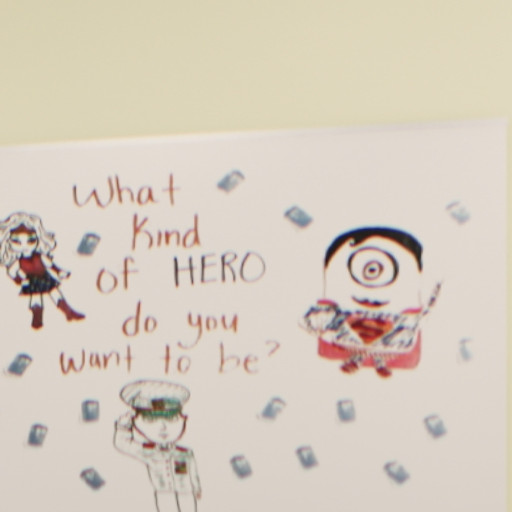 What
Kind
of HERO
do you
want to be?